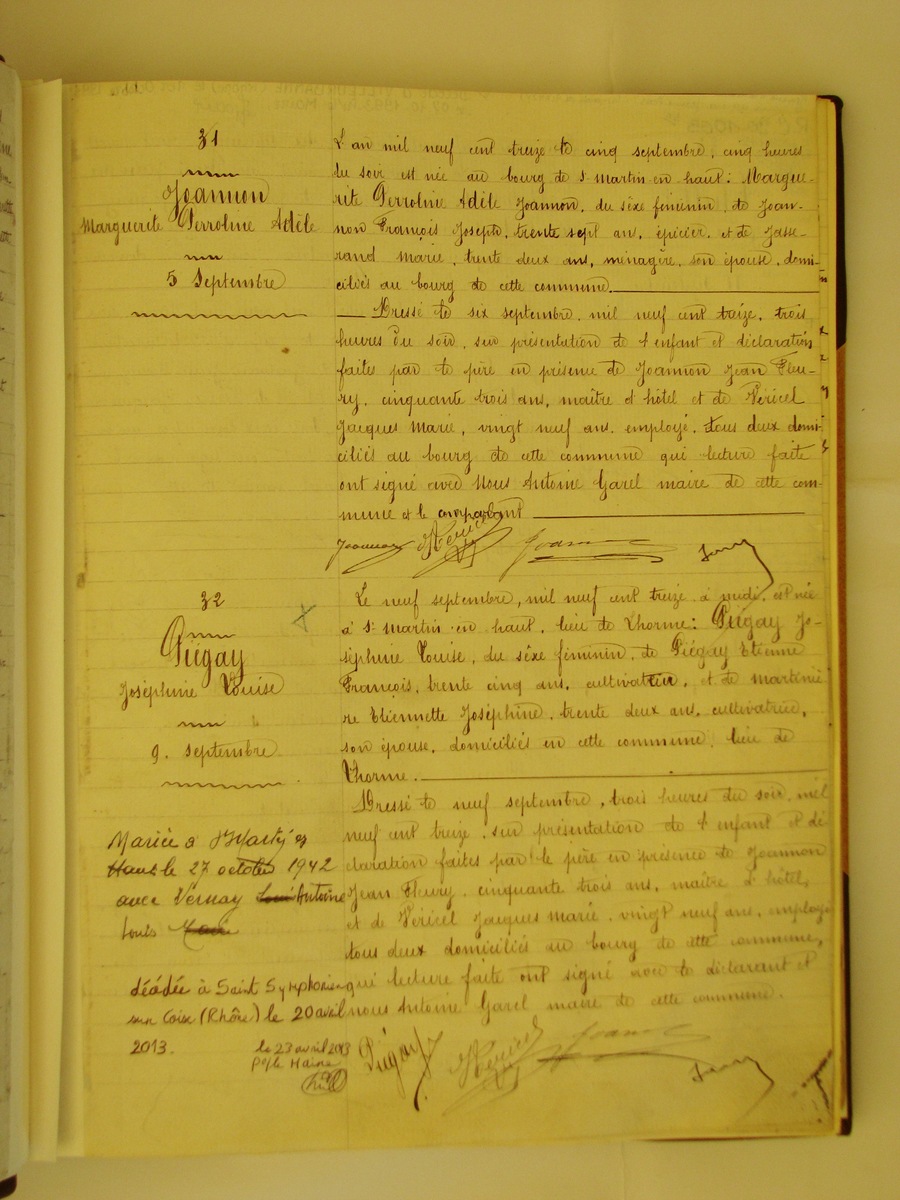 31
Joannon
Marguerite Perroline Adèle
5 Septembre
L'an mil neuf cent treize le cinq septembre, cinq heures
du soir est née au bourg de St Martin en haut: Margue-
rite Perroline Adèle Joannon, du sèxe féminin, de Joan-
non François Joseph, trente sept ans, épicier, et de Jasse-
rand Marie, trente deux ans, ménagère, son épouse, domi-
ciliés au bourg de cette commune.
Dressé le six septembre, mil neuf cent treize, trois
heures du soir, sur présentation de l'enfant et déclaration
faites par le père en présence de Joannon Jean Fleu-
ry, cinquante trois ans, maître d'hôtel et de Véricel
Jacques Marie, vingt neuf ans, employé, tous deux domi-
ciliés au bourg de cette commune qui lecture faite
ont signé avec Nous Antoine Garel maire de cette com-
mune et le comparant
Joannon Véricel Joannon
32
Piégay
Joséphine Louise
9. septembre
Le neuf septembre, mil neuf cent treize à midi, est née
à St Martin en haut, lieu de Lhorme: Piégay Jo-
séphine Louise, du sèxe féminin, de Piégay Etienne
François, trente cinq ans, cultivateur, et de Martiniè
re Etiennette Joséphine, trente deux ans, cultivatrice,
son épouse, domiciliés en cette commune, lieu de
Lhorme.
Dressé le neuf septembre, trois heures du soir, mil
neuf cent treize, sur présentation de l'enfant et dé-
claration faites par le père en présence de Joannon
Jean Fleury, cinquante trois ans, maître d'hôtel,
et de Véricel Jacques Marie, vingt neuf ans, employé
tous deux domiciliés au bourg de cette commune,
qui lecture faite ont signé avec le déclarant et
nous Antoine Garel maire de cette commune.
Piégay Véricel Joannon
Mariée à St Martin en
Haut le 27 octobre 1942
avec Vernay Antoine
Louis
décédée à Saint Symphorien
sur Coise (Rhône) le 20 avril
2013.
le 23 avril 2013
P/ le Maire